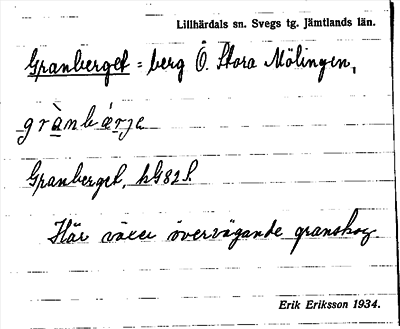 Lillhärdals sn. Svegs tg. Jämtlands län.
Granberget = berg Ö. Stora Mölingen,
grànbærje
Granberget,
Här växer övervägande granskog.
Erik Eriksson 1934.